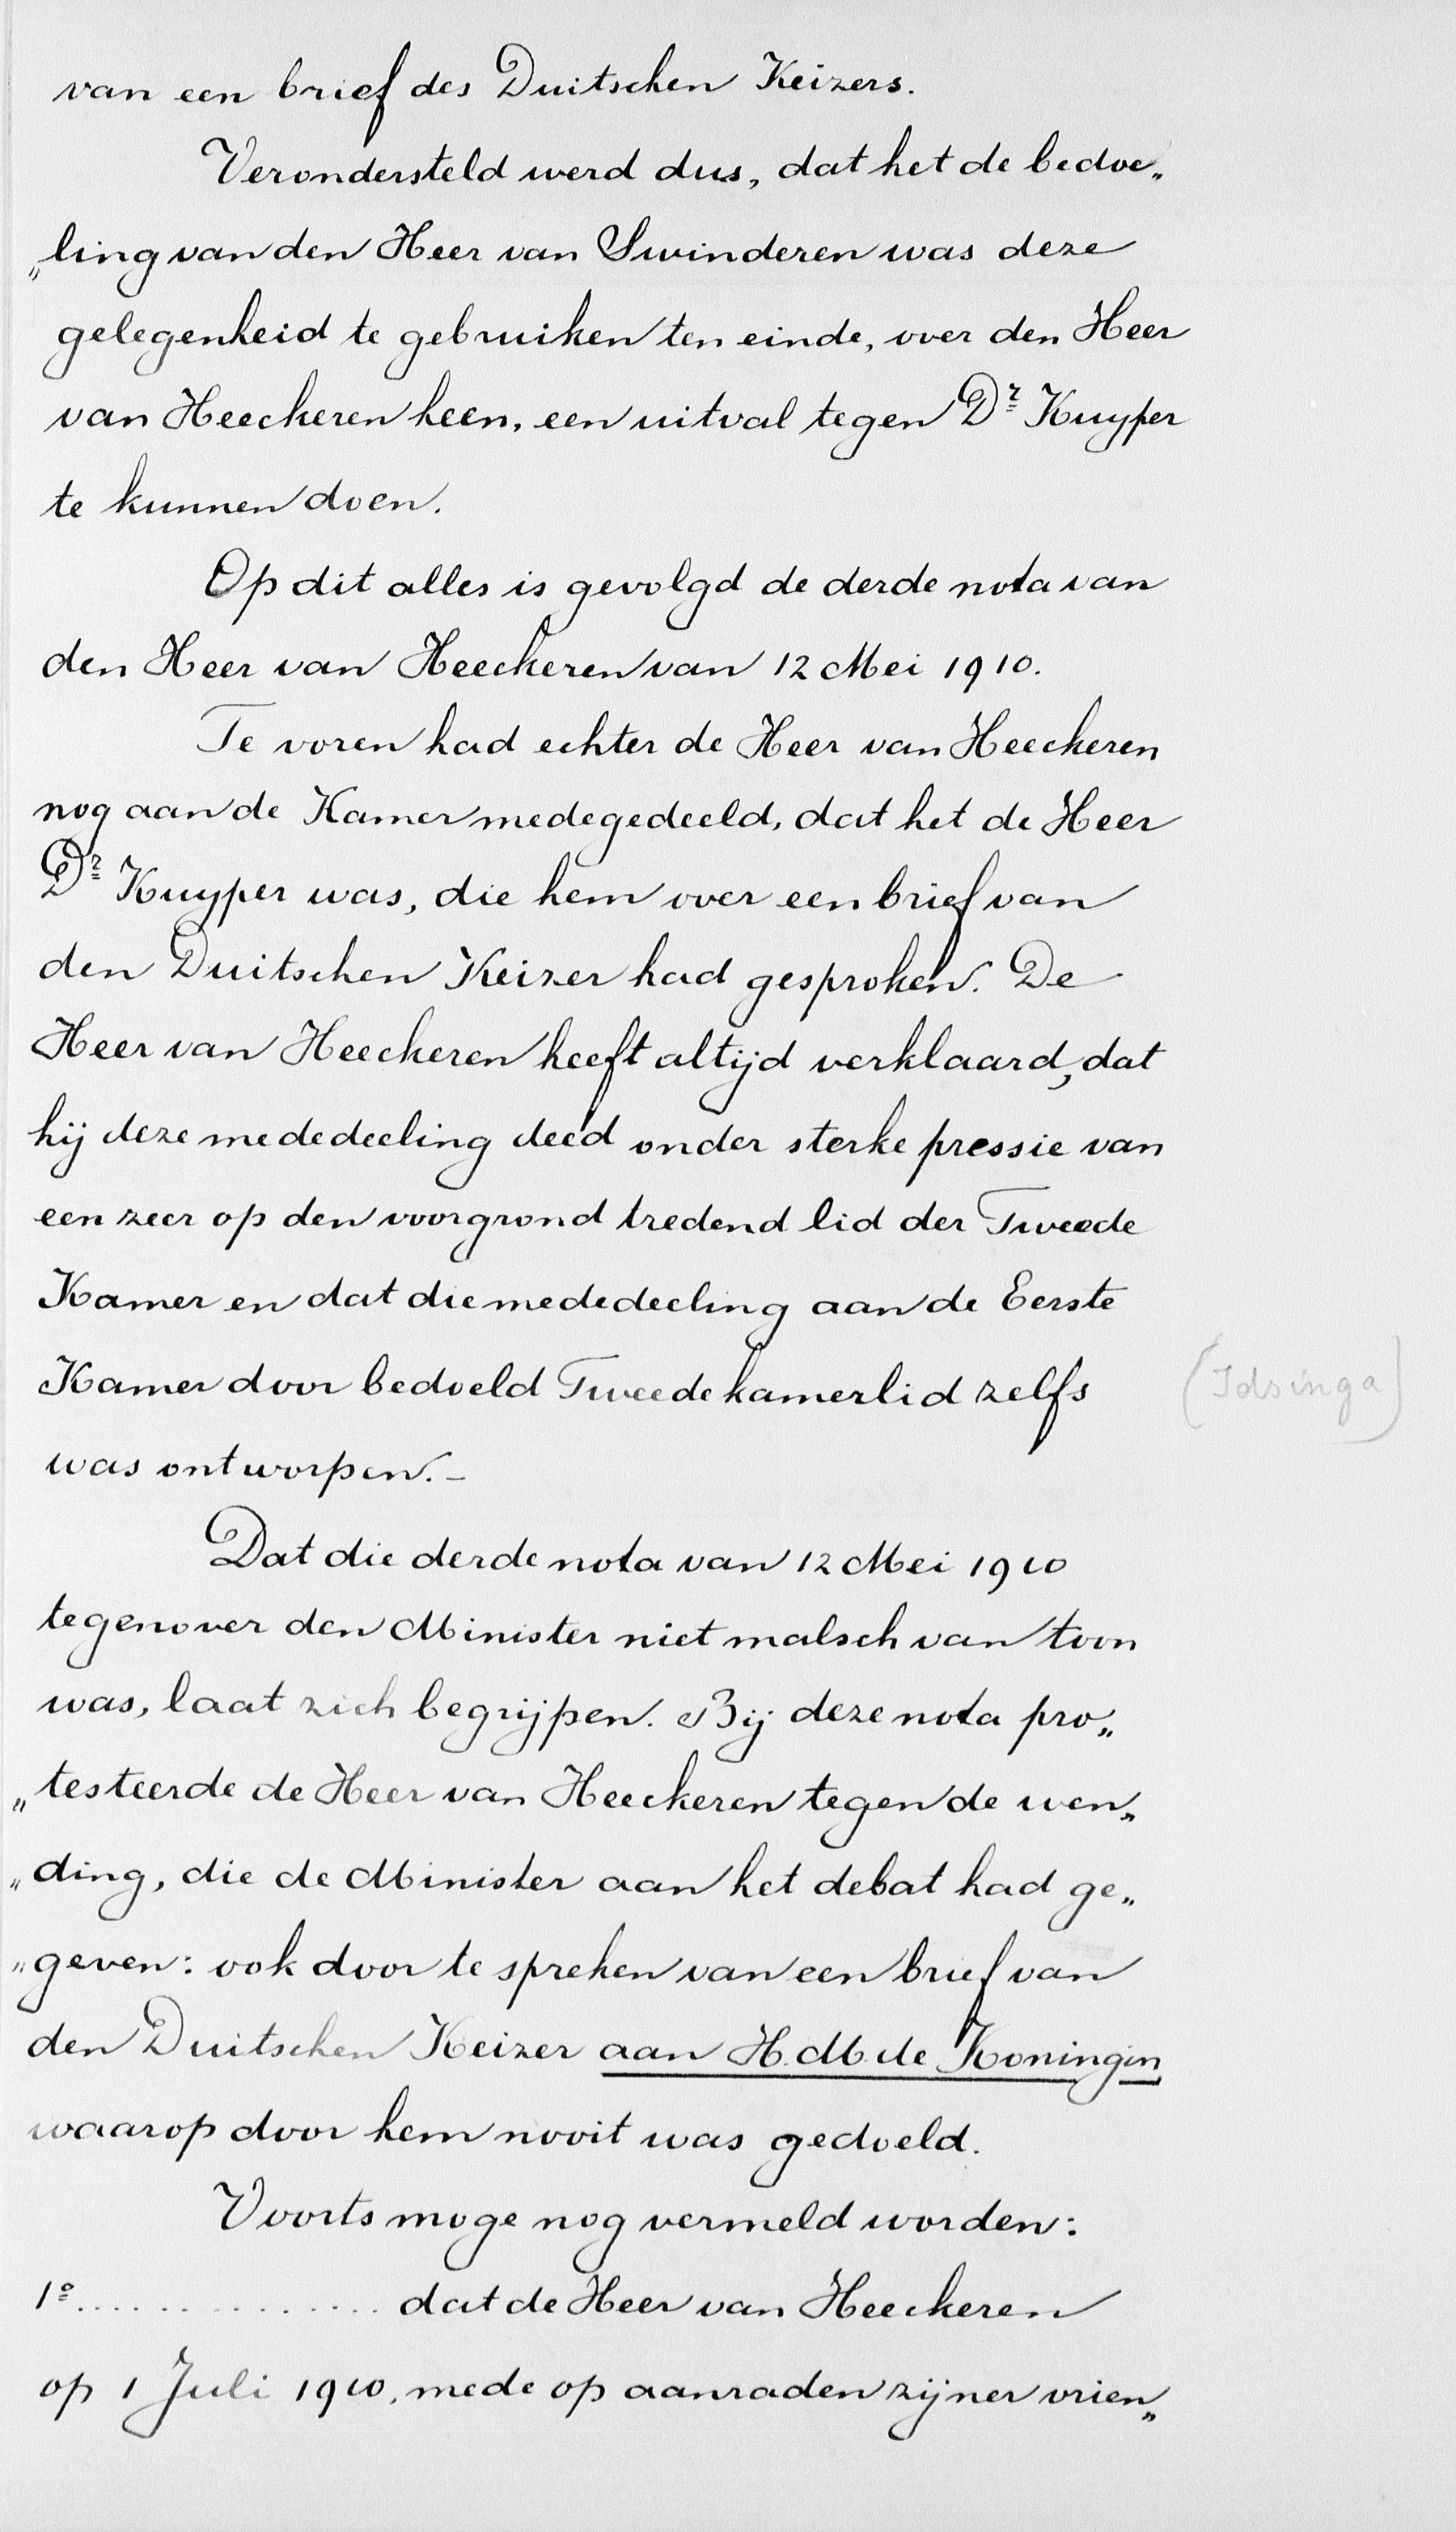 van een brief des Duitschen Keizers.
Verondersteld werd dus, dat het de bedoe„
„ling van den Heer van Swinderen was deze
gelegenheid te gebruiken ten einde, over den Heer
van Heeckeren heen, een uitval tegen Dr Kuyper
te kunnen doen.
Op dit alles is gevolgd de derde nota van
den Heer van Heeckeren van 12 Mei 1910.
Te voren had echter de Heer van Heeckeren
nog aan de Kamer medegedeeld, dat het de Heer
Dr Kuyper was, die hem over een brief van
den Duitschen Keizer had gesproken. De
Heer van Heeckeren heeft altijd verklaard, dat
hij deze mededeeling deed onder sterke pressie van
een zeer op den voorgrond tredend lid der Tweede
Kamer en dat die mededeeling aan de Eerste
Kamer door bedoeld Tweedekamerlid zelfs (Idsinga)
was ontworpen. –
Dat die derde nota van 12 Mei 1910
tegenover den Minister niet malsch van toon
was, laat zich begrijpen. Bij deze nota pro„
„testeerde de Heer van Heeckeren tegen de wen„
„ding, die de Minister aan het debat had ge„
„geven: ook door te spreken van een brief van
den Duitschen Keizer aan H.M. de Koningin
waarop door hem nooit was gedoeld.
Voorts moge nog vermeld worden:
1º............... dat de Heer van Heeckeren
op 1 Juli 1910, mede op aanraden zijner vrien„